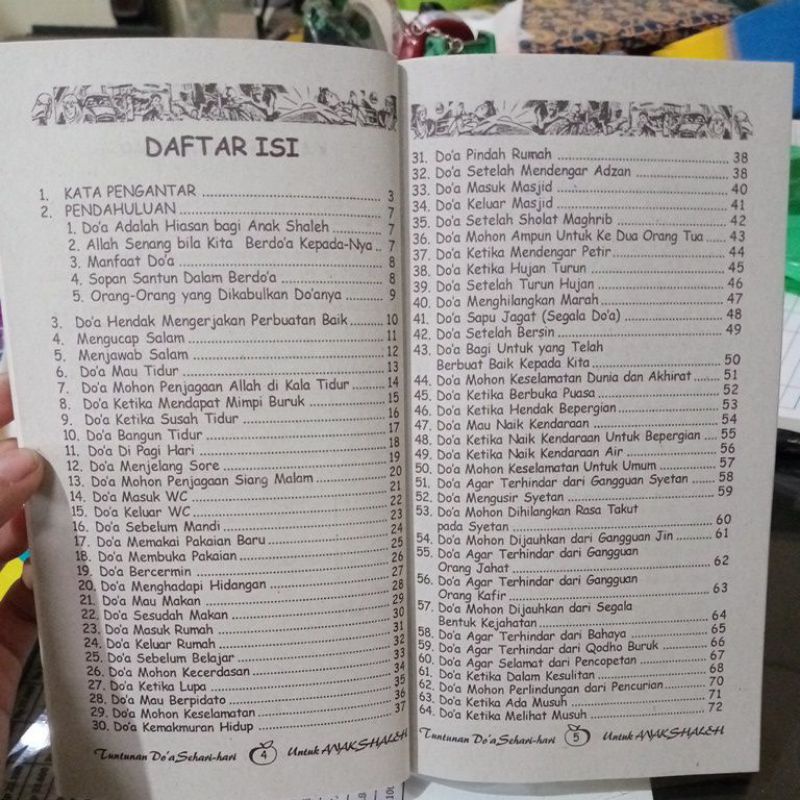 DAFTAR ISI
1. KATA PENGANTAR ........ 3
2. PENDAHULUAN ........ 7
1. Do'a Adalah Hiasan bagi Anak Shaleh ........ 7
2. Allah Senang bila Kita Berdo'a Kepada-Nya .. 7
3. Manfaat Do'a ........ 8
4. Sopan Santun Dalam Berdo'a ........ 8
5. Orang-Orang yang Dikabulkan Do'anya ........ 9
3. Do'a Hendak Mengerjakan Perbuatan Baik ........ 10
4. Mengucap Salam ........ 11
5. Menjawab Salam ........ 12
6. Do'a Mau Tidur ........ 13
7. Do'a Mohon Penjagaan Allah di Kala Tidur ........ 14
8. Do'a Ketika Mendapat Mimpi Buruk ........ 15
9. Do'a Ketika Susah Tidur ........ 16
10. Do'a Bangun Tidur ........ 17
11. Do'a Di Pagi Hari ........ 18
12. Do'a Menjelang Sore ........ 19
13. Do'a Mohon Penjagaan Siang Malam ........ 20
14. Do'a Masuk WC ........ 21
15. Do'a Keluar WC ........ 22
16. Do'a Sebelum Mandi ........ 23
17. Do'a Memakai Pakaian Baru ........ 24
18. Do'a Membuka Pakaian ........ 25
19. Do'a Bercermin ........ 26
20. Do'a Menghadapi Hidangan ........ 27
21. Do'a Mau Makan ........ 28
22. Do'a Sesudah Makan ........ 29
23. Do'a Masuk Rumah ........ 30
24. Do'a Keluar Rumah ........ 31
25. Do'a Sebelum Belajar ........ 32
26. Do'a Mohon Kecerdasan ........ 33
27. Do'a Ketika Lupa ........ 34
28. Do'a Mau Berpidato ........ 35
29. Do'a Mohon Keselamatan ........ 36
30. Do'a Kemakmuran Hidup ........ 37
Tuntunan Do'a Sehari-hari 4 Untuk ANAK SHALEH
31. Do'a Pindah Rumah ........ 38
32. Do'a Setelah Mendengar Adzan ........ 38
33. Do'a Masuk Masjid ........ 40
34. Do'a Keluar Masjid ........ 41
35. Do'a Setelah Sholat Maghrib ........ 42
36. Do'a Mohon Ampun Untuk Ke Dua Orang Tua ...... 43
37. Do'a Ketika Mendengar Petir ........ 44
38. Do'a Ketika Hujan Turun ........ 45
39. Do'a Setelah Turun Hujan ........ 46
40. Do'a Menghilangkan Marah ........ 47
41. Do'a Sapu Jagat (Segala Do'a) ........ 48
42. Do'a Setelah Bersin ........ 49
43. Do'a Bagi Untuk yang Telah
Berbuat Baik Kepada Kita ........ 50
44. Do'a Mohon Keselamatan Dunia dan Akhirat ........ 51
45. Do'a Ketika Berbuka Puasa ........ 52
46. Do'a Ketika Hendak Bepergian ........ 53
47. Do'a Mau Naik Kendaraan ........ 54
48. Do'a Ketika Naik Kendaraan Untuk Bepergian .... 55
49. Do'a Ketika Naik Kendaraan Air ........ 56
50. Do'a Mohon Keselamatan Untuk Umum ........ 57
51. Do'a Agar Terhindar dari Gangguan Syetan ...... 58
52. Do'a Mengusir Syetan ........ 59
53. Do'a Mohon Dihilangkan Rasa Takut
pada Syetan ........ 60
54. Do'a Mohon Dijauhkan dari Gangguan Jin ........ 61
55. Do'a Agar Terhindar dari Gangguan
Orang Jahat ........ 62
56. Do'a Agar Terhindar dari Gangguan
Orang Kafir ........ 63
57. Do'a Mohon Dijauhkan dari Segala
Bentuk Kejahatan ........ 64
58. Do'a Agar Terhindar dari Bahaya ........ 65
59. Do'a Agar Terhindar dari Qodho Buruk ........ 66
60. Do'a Agar Selamat dari Pencopetan ........ 67
61. Do'a Ketika Dalam Kesulitan ........ 68
62. Do'a Mohon Perlindungan dari Pencurian ........ 70
63. Do'a Ketika Ada Musuh ........ 71
64. Do'a Ketika Melihat Musuh ........ 72
Tuntunan Do'a Sehari-hari 5 Untuk ANAK SHALEH